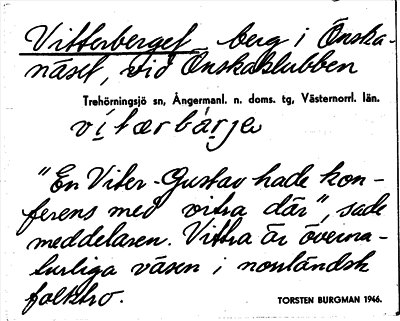 Vitterberget, berg i Önska-
näset, vid Önskaklubben
Trehörningsjö sn, Ångermanl. n. doms. tg, Västernorrl. län.
vítærbàrje
"En Viter-Gustav hade kon-
ferens med vitra där", sade
meddelaren. Vittra är överna-
turliga väsen i norrländsk
folktro.
TORSTEN BURGMAN 1946.